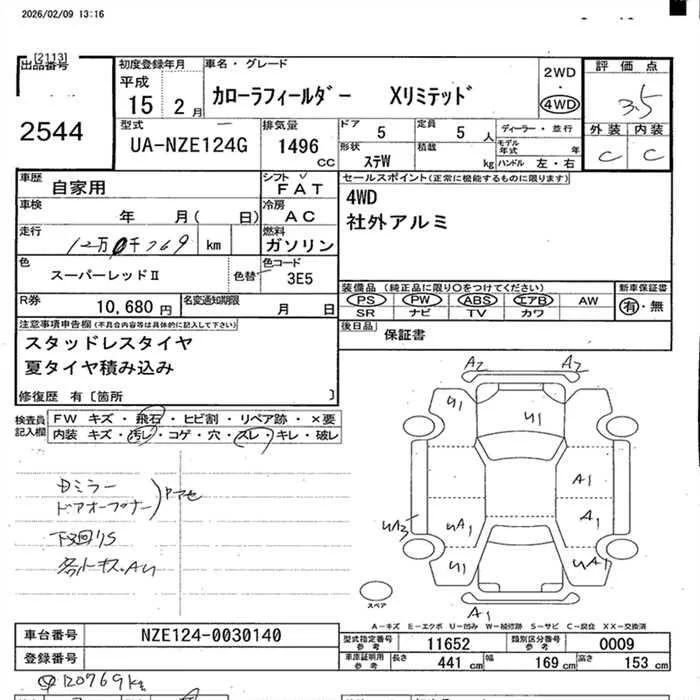 2026/02/09 13:16
[2113]
出品番号
2544
初度登録年月
平成
15 2月
車名・グレード
カローラフィールダー Xリミテッド
2WD
4WD
評価点
3.5
外装 内装
C C
型式
UA-NZE124G
排気量
1496 CC
ドア 5
定員 5人
形状 ステW
積載 kg
ディーラー・並行
モデル年式 年
ハンドル 左・右
車歴 自家用
シフト FAT
車検 年 月( 日)
冷房 AC
走行 12万0千769 km
燃料 ガソリン
色 スーパーレッドⅡ
色替
色コード 3E5
R券 10,680円
名変通知期限 月 日
セールスポイント(正常に機能するものに限ります)
4WD
社外アルミ
装備品 (純正品に限り○をつけてください)
PS PW ABS エアB AW
SR ナビ TV カワ
新車保証書
有・無
後日品 保証書
注意事項申告欄(不具合内容等は具体的に記入して下さい)
スタッドレスタイヤ
夏タイヤ積み込み
修復歴 有〔箇所 〕
検査員記入欄
FW キズ・飛石・ヒビ割・リペア跡・×要
内装 キズ・汚レ・コゲ・穴・スレ・キレ・破レ
Dミラー
ドアオープナー
下廻りS
A2 A2
U1
U1
A1
A1
UA2
UA1
U1
UA1
A1
スペア
A-キズ E-エクボ U-凹み W-補修跡 S-サビ C-腐食 XX-交換済
車台番号 NZE124-0030140
登録番号
型式指定番号 参考 11652
類別区分番号 参考 0009
車庫証明用 参考 長さ 441cm 幅 169cm 高さ 153cm
120769km